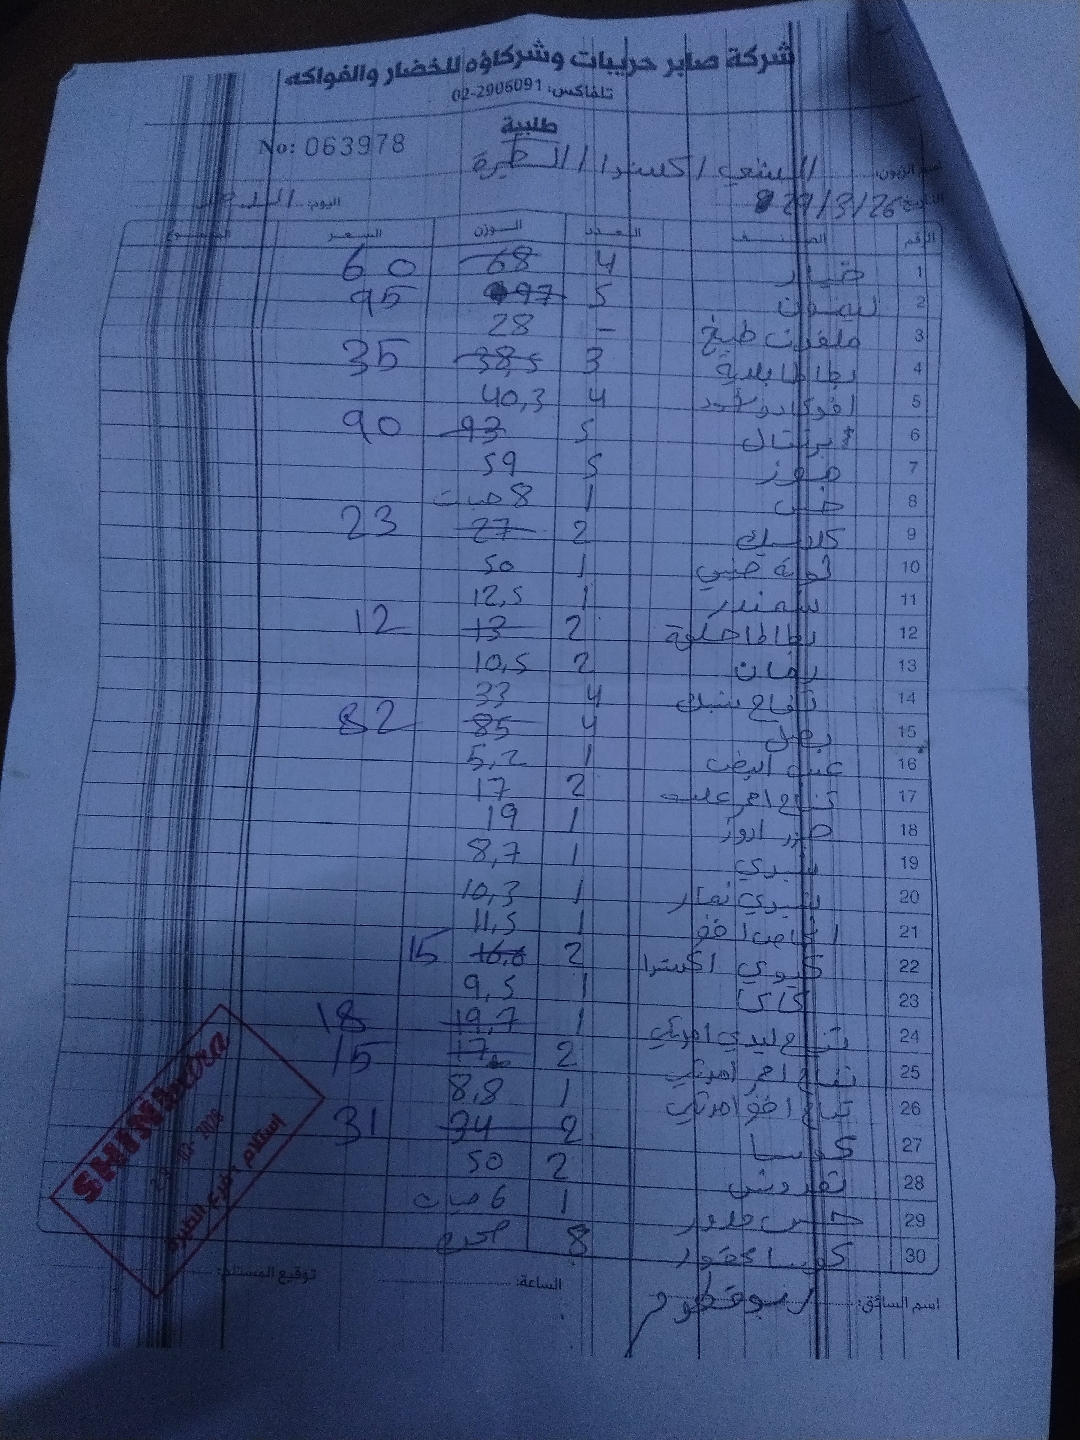 شركة صابر حريبات وشركاؤه للخضار والفواكه
تلفاكس: 02-2906091
طلبية
No: 063978
الشني اكسترا / الطيرة
التاريخ: 29/3/26 اليوم:
الرقم الصنف العدد الوزن السعر المجموع
1 خيار 4 68 60
2 ليمون 5 97 95
3 ملفوف طبخ - 28
4 بطاطا بلدية 3 38,5 35
5 افوكادو 4 40,3
6 برتقال 5 93 90
7 موز 5 59
8 خس 1 8 حبات
9 كلاسيك 2 27 23
10 ثومة صيني 1 50
11 شمندر 1 12,5
12 بطاطا حلوة 2 13 12
13 رمان 2 10,5
14 تفاح 4 33
15 بصل 4 85 82
16 عنب ابيض 1 5,2
17 تفاح احمر 2 17
18 جزر 1 19
19 شيري 1 8,7
20 شيري 1 10,3
21 1 11,5
22 كيوي اكسترا 2 15
23 كاكا 1 9,5
24 تفاح ليدي امريكي 1 19,7 18
25 تفاح احمر امريكي 2 17 15
26 تفاح اخضر امريكي 1 8,8
27 كوسا 2 34 31
28 بقدونس 2 50
29 خس مدور 1 6 حبات
30 كوسا 8
SHINI extra
استلام - فرع الطيرة
اسم السائق: الساعة: توقيع المستلم: